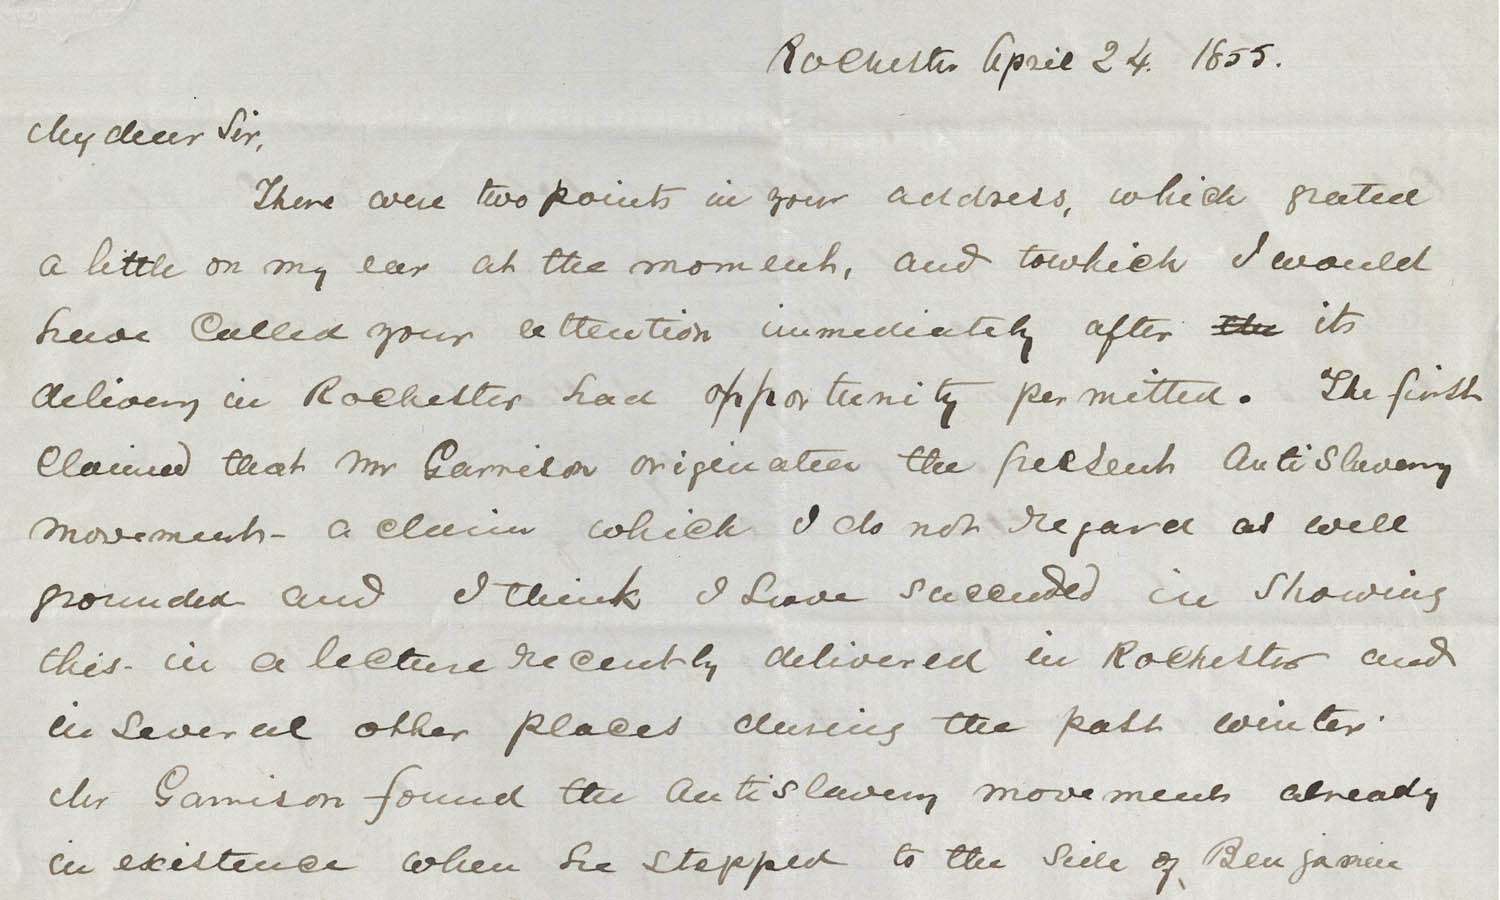 Rochester April 24. 1855.
My dear Sir,
There were two points in your address, which grated
a little on my ear at the moment, and to which I would
have called your attention immediately after the its
delivery in Rochester had opportunity permitted. The first
Claimed that Mr Garrison originated the present Antislavery
movement - a claim which I do not regard as well
grounded and I think I have succeeded in Showing
this - in a lecture recently delivered in Rochester and
in several other places during the past winter.
Mr Garrison found the Antislavery movement already
in existence when he stepped to the side of Benjamin